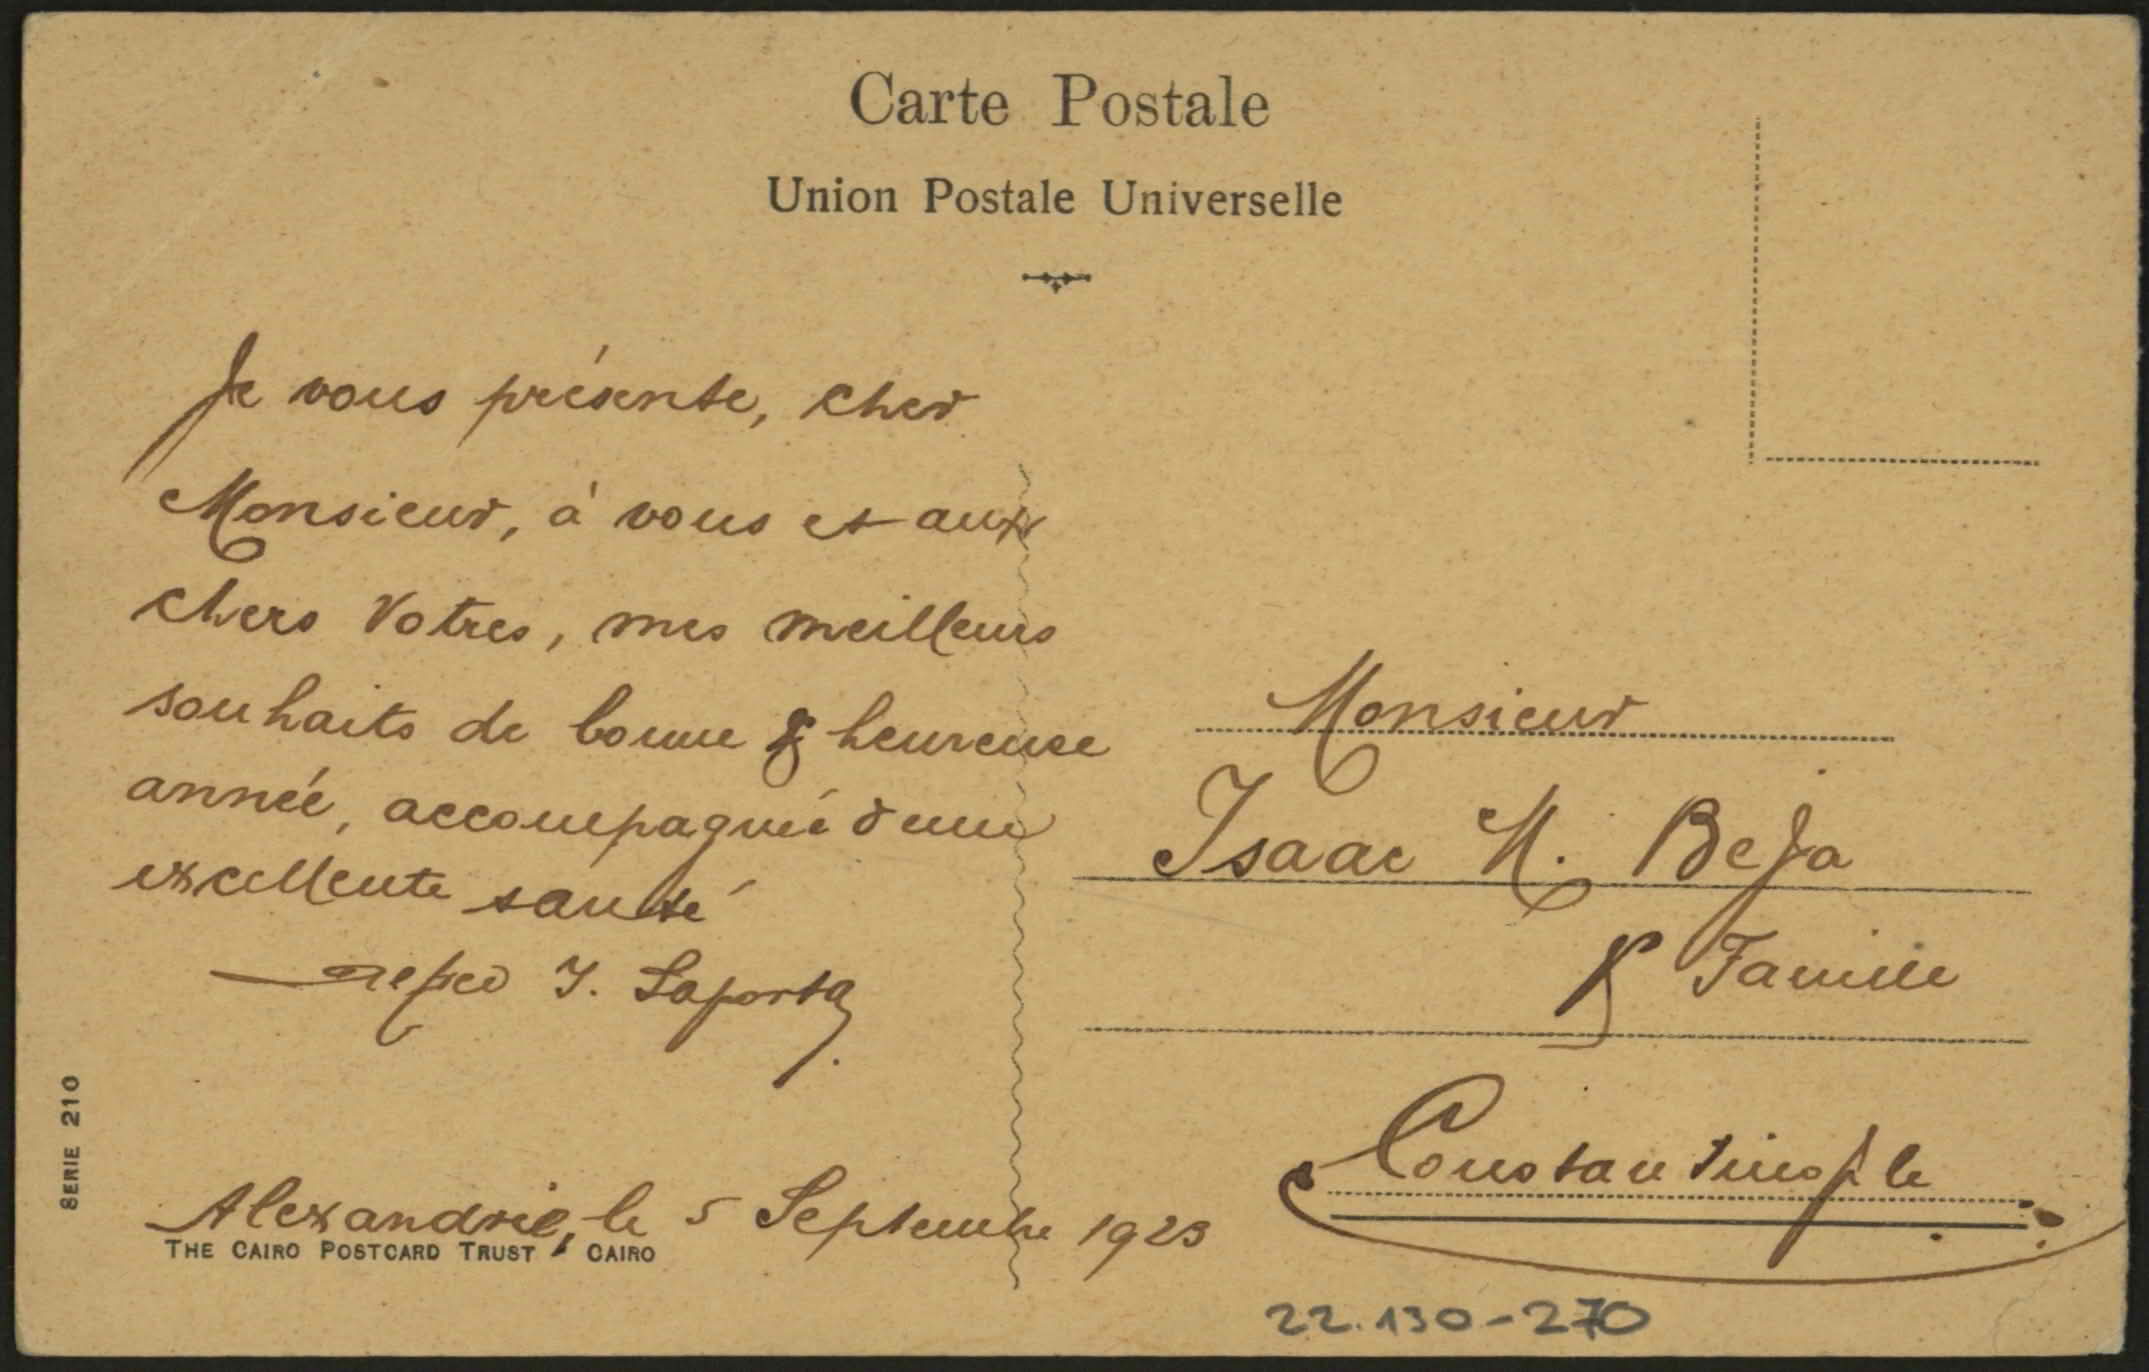 Carte Postale
Union Postale Universelle
Je vous présente, cher
Monsieur, à vous et aux
chers Votres, mes meilleurs
souhaits de bonne & heureuse
année, accompagnée d'une
excellente santé
J. Saporta
Alexandrie, le 5 Septembre 1923
SERIE 210
THE CAIRO POSTCARD TRUST, CAIRO
Monsieur
Isaac M. Beja
& Famille
Constantinople
22.130-270